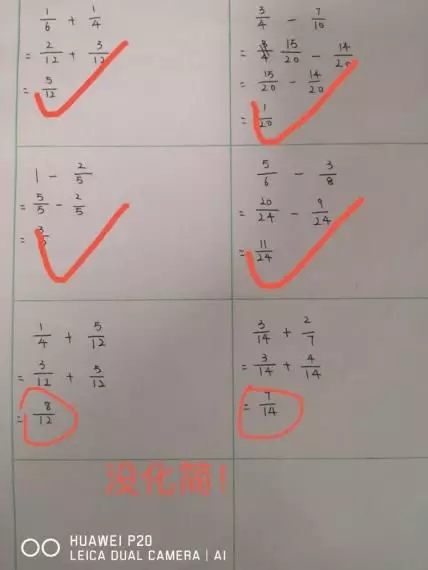 1/6 + 1/4
= 2/12 + 3/12
= 5/12
3/4 - 7/10
= 15/20 - 14/20
= 15/20 - 14/20
= 1/20
1 - 2/5
= 5/5 - 2/5
= 3/5
5/6 - 3/8
= 20/24 - 9/24
= 11/24
1/4 + 5/12
= 3/12 + 5/12
= 8/12
3/14 + 2/7
= 3/14 + 4/14
= 7/14
没化简!
HUAWEI P20
LEICA DUAL CAMERA | AI